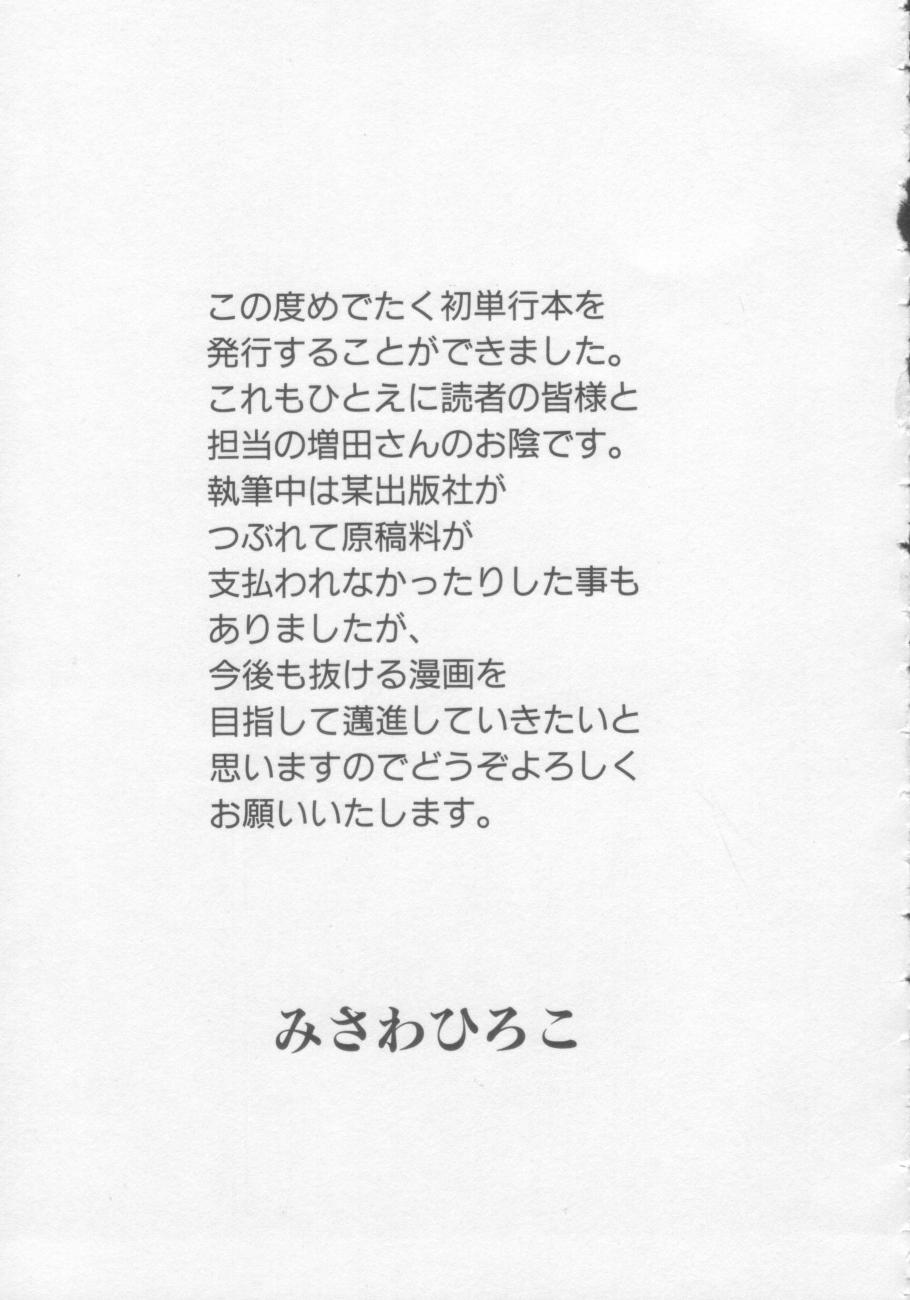 この度めでたく初単行本を
発行することができました。
これもひとえに読者の皆様と
担当の増田さんのお陰です。
執筆中は某出版社が
つぶれて原稿料が
支払われなかったりした事も
ありましたが、
今後も抜ける漫画を
目指して邁進していきたいと
思いますのでどうぞよろしく
お願いいたします。
みさわひろこ